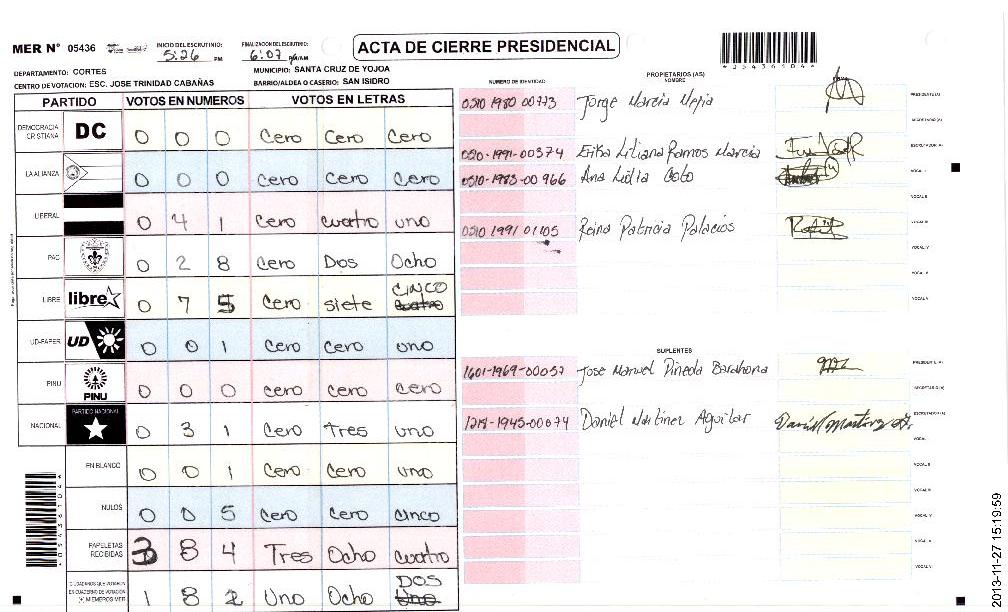 MER N° 05436 INICIO DEL ESCRUTINIO: 5:26 PM FINALIZACION DEL ESCRUTINIO: 6:07 PM/AM
ACTA DE CIERRE PRESIDENCIAL
DEPARTAMENTO: CORTES MUNICIPIO: SANTA CRUZ DE YOJOA
CENTRO DE VOTACION: ESC. JOSE TRINIDAD CABAÑAS BARRIO/ALDEA O CASERIO: SAN ISIDRO
PARTIDO VOTOS EN NUMEROS VOTOS EN LETRAS
DEMOCRACIA CRISTIANA DC 0 0 0 Cero Cero Cero
LA ALIANZA 0 0 0 Cero Cero Cero
LIBERAL 0 4 1 Cero Cuatro uno
PAC 0 2 8 Cero Dos Ocho
LIBRE libre 0 7 5 Cero siete CINCO
UD-FAPER UD 0 0 1 Cero Cero uno
PINU PINU 0 0 0 Cero Cero Cero
NACIONAL PARTIDO NACIONAL 0 3 1 Cero Tres uno
EN BLANCO 0 0 1 Cero Cero uno
NULOS 0 0 5 Cero Cero Cinco
PAPELETAS RECIBIDAS 3 8 4 Tres Ocho Cuatro
CIUDADANOS QUE VOTARON EN CUADERNO DE VOTACION + MIEMBROS MER 1 8 2 Uno Ocho DOS
PROPIETARIOS (AS)
NUMERO DE IDENTIDAD NOMBRE FIRMA
0510 1980 00773 Jorge Marcia Mejia PRESIDENTE(A)
SECRETARIO (A)
Erika Liliana Ramos Marcia ESCRUTADOR (A)
0510-1983-00966 Ana Lidia Coto VOCAL I
VOCAL II
0510 1991 01105 Reina Patricia Palacios VOCAL III
VOCAL IV
VOCAL V
SUPLENTES
1601-1969-00057 Jose Manuel Pineda Barahona PRESIDENTE (A)
SECRETARIO (A)
1218-1945-00074 Daniel Martinez Aguilar ESCRUTADOR (A)
VOCAL I
VOCAL II
VOCAL III
VOCAL IV
VOCAL V
*05436104*
2013-11-27 15:19:59